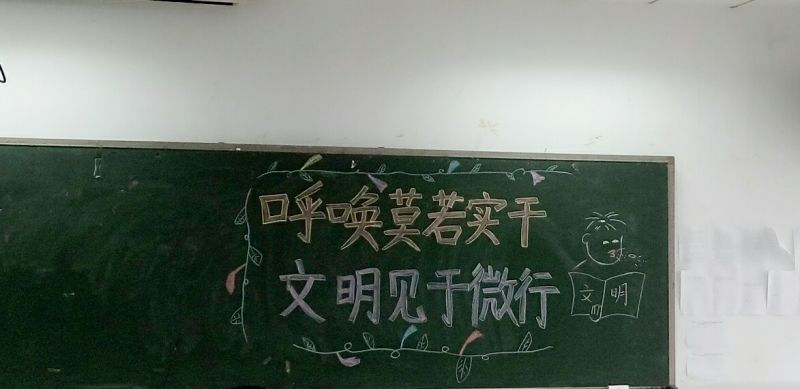 呼唤莫若实干
文明见于微行
文明